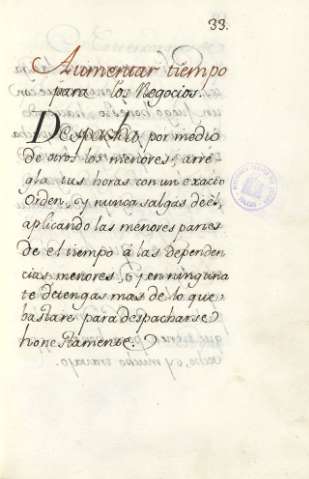 33.
Aumentar tiempo
para los Negocios.
Despacha, por medio
de otros los menores; arre
gla tus horas con un exacto
Orden, y nunca salgas de èl,
aplicando las menores partes
de el tiempo â las dependen
cias menores, y en ninguna
te detengas mas de lo que
bastare para despacharse
honestamente.